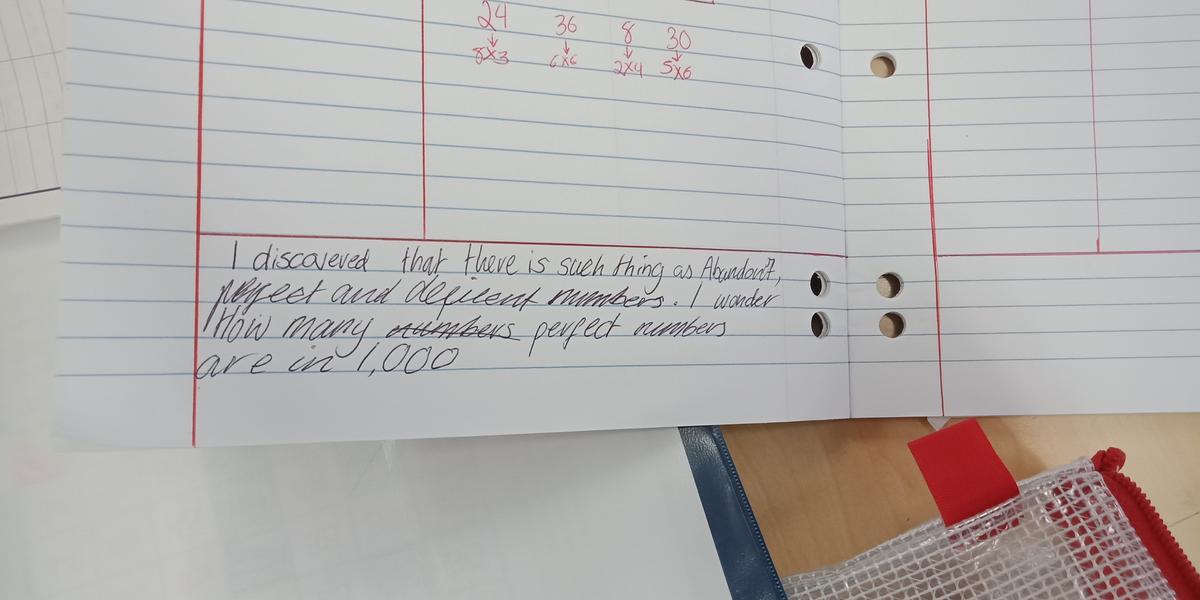 24 36 8 30
8x3 6x6 2x4 5x6
I discovered that there is such thing as Abandant,
perfect and deficent numbers. I wonder
How many numbers perfect numbers
are in 1,000